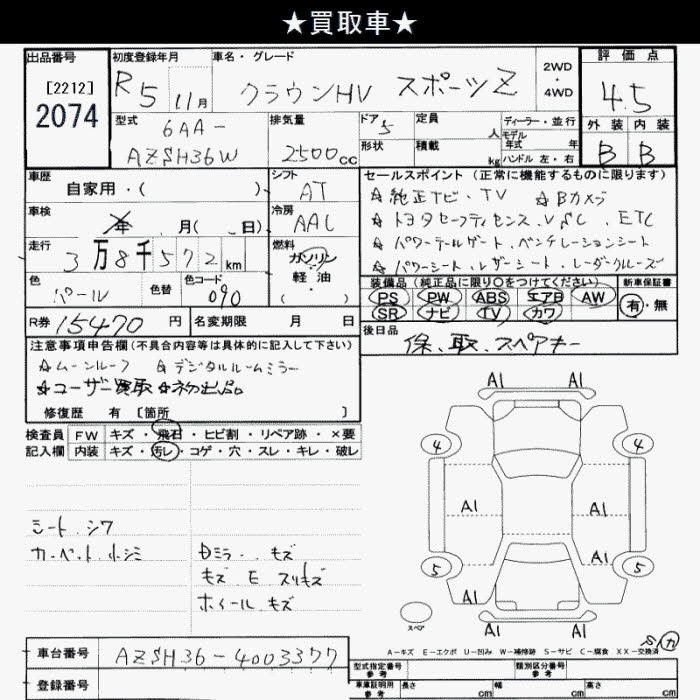 ★買取車★
出品番号 [2212] 2074
初度登録年月 R 5 11月
車名・グレード クラウンHV スポーツZ
2WD・4WD
評価点 4.5
外装 B 内装 B
型式 6AA-AZSH36W
排気量 2500cc
ドア 5 形状
定員 人 積載 kg
ディーラー・並行
モデル年式 年
ハンドル 左・右
車歴 自家用・( )
シフト AT
車検 年 月( 日)
冷房 AAC
走行 3万8千572km
燃料 ガソリン・軽油・( )
色 パール 色替 色コード 090
R券 15470円 名変期限 月 日
セールスポイント(正常に機能するものに限ります)
☆純正ナビ・TV ☆Bカメラ
☆トヨタセーフティセンス、VSC、ETC
☆パワーテールゲート、ベンチレーションシート
☆パワーシート、レザーシート、レーダークルーズ
装備品(純正品に限り○をつけてください) 新車保証書
PS PW ABS エアB AW 有・無
SR ナビ TV カワ
後日品 保、取、スペアキー
注意事項申告欄(不具合内容等は具体的に記入して下さい)
☆ムーンルーフ ☆デジタルルームミラー
☆ユーザー買取 ☆初出品
修復歴 有 [箇所 ]
検査員 FW キズ・飛石・ヒビ割・リペア跡・×要
記入欄 内装 キズ・汚レ・コゲ・穴・スレ・キレ・破レ
シート、シワ
カーペット、小シミ
Dミラー、キズ
キズ E スリキズ
ホイール、キズ
A1 A1
4 4
A1 A1
A1 A1
5 5
A1 A1
スペア
A-キズ E-エクボ U-凹み W-補修跡 S-サビ C-腐食 XX-交換済
車台番号 AZSH36-4003377
型式指定番号 参考 類別区分番号 参考
登録番号
車庫証明用 参考 長さ cm 幅 cm 高さ cm